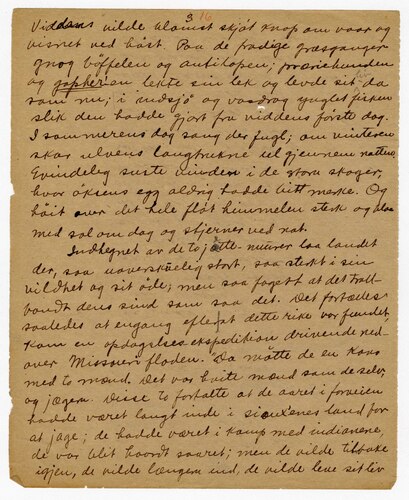 3 16
Viddens vilde blomst skjøt knop om vaar og
visnet ved höst. Paa de frodige græsganger
gnog böffelen og antilopen; præriehunden
og gopheren lekte sin lek og levde sit da
som nu; i indsjø og vasdrag ynglet fisken
slik den hadde gjort fra viddens første dag.
I sommerens dag sang der fugl; om vinteren
skar ulvens langtrukne ul gjennem natten.
Evindelig suste vinden i de store skoger,
hvor öksens egg aldrig hadde bitt merke. Og
höit over det hele fløt himmelen sterk og blaa
med sol om dag og stjerner ved nat.
Indhegnet av de to jøtte-murer laa landet
der, saa uoverskuelig stort, saa sterkt i sin
vildhet og sit öde; men saa fagert at det troll-
bandt dens sind som saa det. Det fortælles
saaledes at engang efterat dette rike var fundet,
kom en opdagelsesekspedition drivende ned-
over Missouri floden. Da møtte de en kano
med to mænd. Det var hvite mænd som de selv,
og jægere. Disse to fortalte at de aaret i forveien
hadde været langt inde i siouxenes land for
at jage; de hadde været i kamp med indianerne,
de var blit haardt saaret; men de vilde tilbake
igjen, de vilde længere ind, de vilde leve sit liv